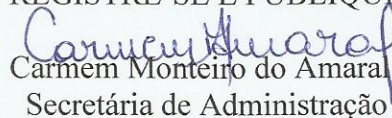 REGISTRE-SE E PUBLIQU
Carmem Amaral
Carmem Monteiro do Amaral
Secretária de Administração